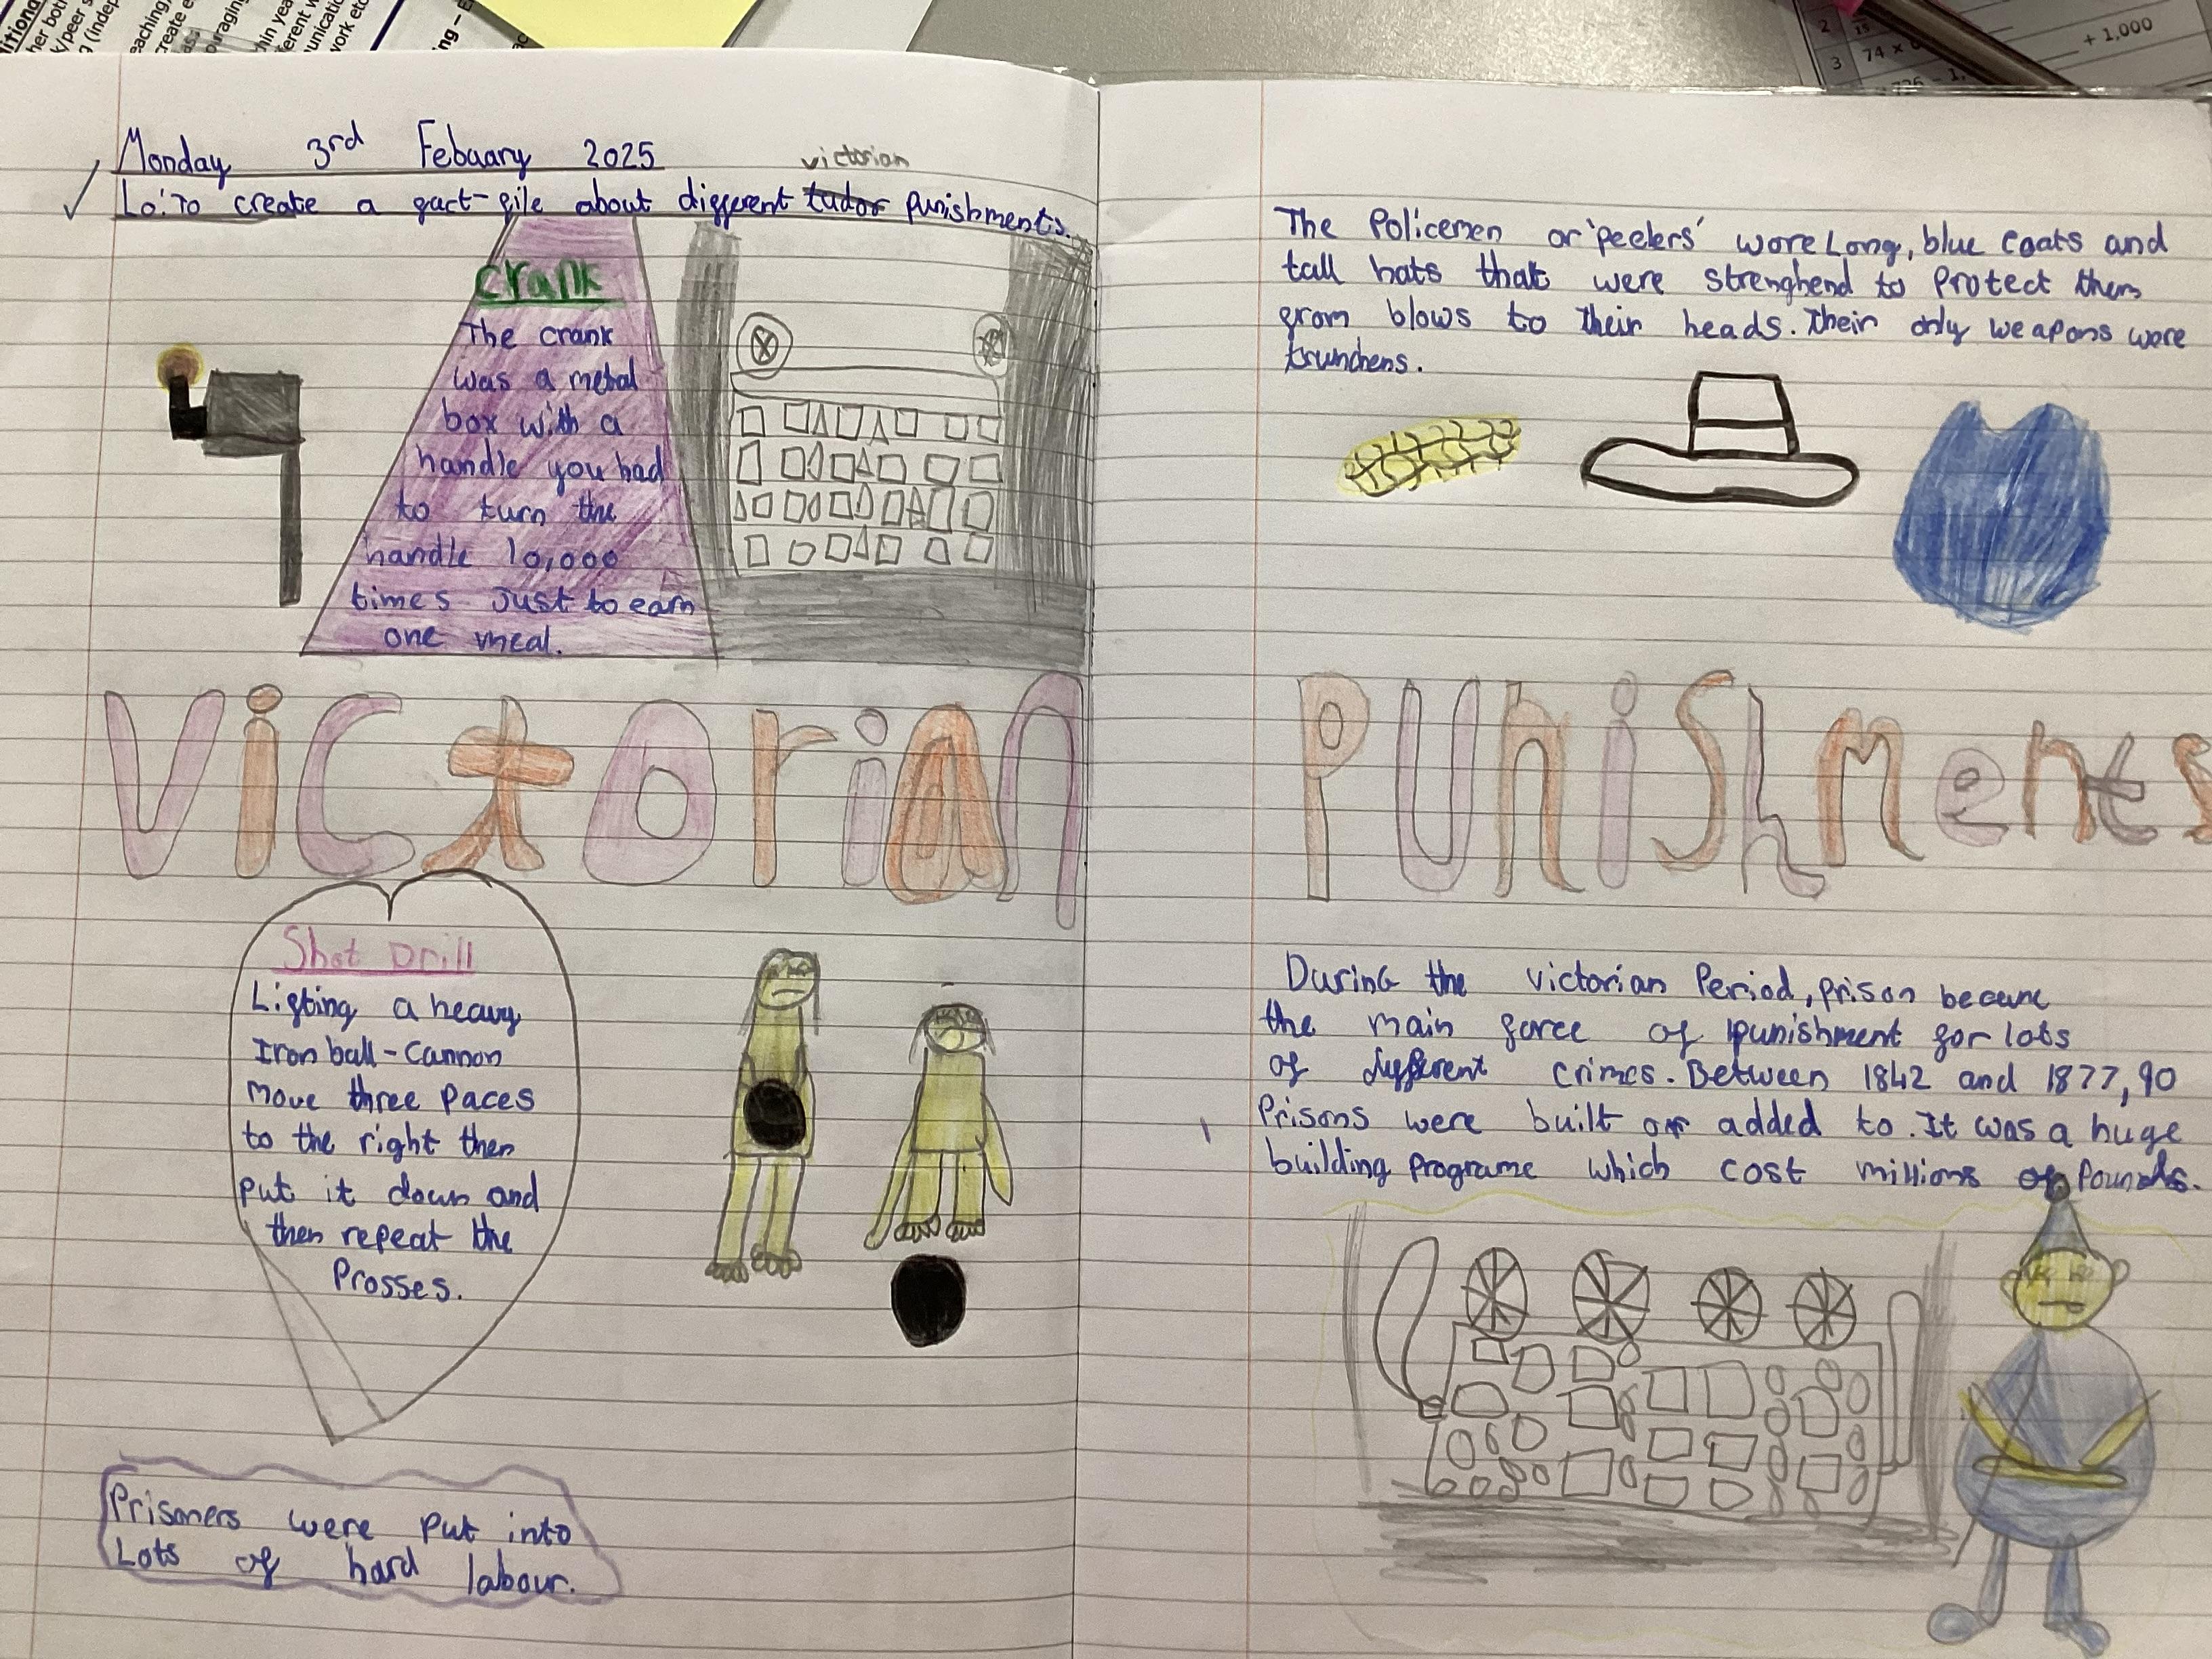 Monday 3rd Febuary 2025
victorian
Lo: To create a fact-file about different tudor punishments.
Crank
The crank
was a metal
box with a
handle you had
to turn the
handle 10,000
times. Just to earn
one meal.
Victorian
Shot Drill
Lifting a heavy
Iron ball-Cannon
move three paces
to the right then
put it down and
then repeat the
Prosses.
Prisoners were put into
Lots of hard labour.
The Policemen or 'peelers' wore Long, blue coats and
tall hats that were strenghend to Protect them
from blows to their heads. Their only weapons were
trunchens.
Punishments
During the victorian Period, prison became
the main force of punishment for lots
of different crimes. Between 1842 and 1877, 90
Prisons were built or added to. It was a huge
building programe which cost millions of Pounds.
2
3 74 ×
+ 1,000